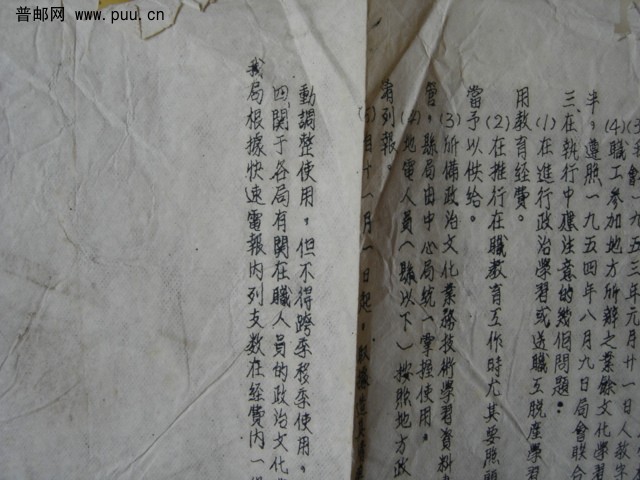 普邮网 www.puu.cn
(4)職工参加地方所辦之業餘文化學習
半，遵照一九五四年八月九日局會联合
三、在執行中應注意的幾個問題：
(1)在進行政治學習或送職工脱產學習
用教育經費。
(2)在推行在職教育工作時尤其要照顧
當予以供給。
(3)所備政治文化業務技術學習資料
管，縣局由中心局統一掌握使用。
(4)地電人員(縣以下)按照地方政
列報。
(5)自十一月一日起，
動調整使用，但不得跨季移季使用，
四、関于各局有関在職人員的政治文化
我局根據快速電報内列支数在經費内一